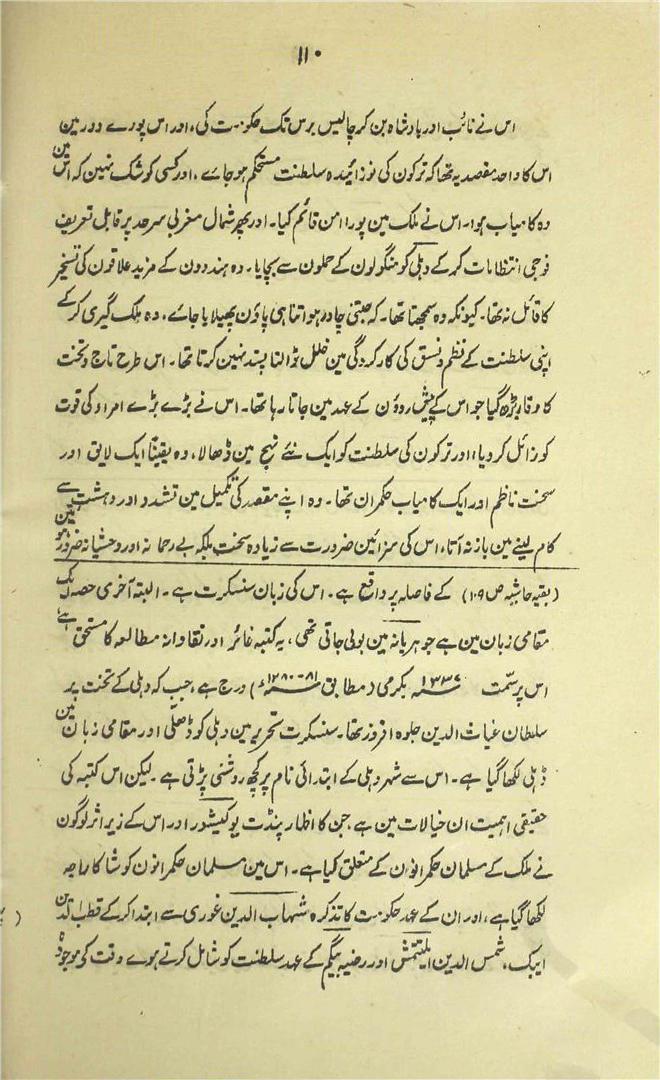 ۱۱۰
اس نے نائب اور بادشاہ بن کر چالیس برس تک حکومت کی، اور اس پورے دور مین
اس کا واحد مقصد یہ تھا کہ ترکون کی نوزائیدہ سلطنت مستحکم ہو جائے، اور کسی کو شک نہین کہ اس مین
وہ کامیاب ہوا۔ اس نے ملک مین پورا امن قائم کیا۔ اور پھر شمال مغربی سرحد پر قابل تعریف
فوجی انتظامات کر کے دہلی کو منگولون کے حملون سے بچایا۔ وہ ہندوون کے مزید علاقون کی تسخیر
کا قائل نہ تھا۔ کیونکہ وہ سمجھتا تھا۔ کہ جتنی چادر ہو اتنا ہی پاؤن پھیلایا جائے، وہ ملک گیری کر کے
اپنی سلطنت کے نظم و نسق کی کارکردگی مین خلل ڈالنا پسند نہین کرتا تھا۔ اس طرح تاج و تخت
کا وقار بڑھ گیا جو اس کے پیش روؤن کے عہد مین جاتا رہا تھا۔ اس نے بڑے بڑے امراء کی قوت
کو زائل کر دیا، اور ترکون کی سلطنت کو ایک نئے نہج مین ڈھالا، وہ یقیناً ایک لایق اور
سخت ناظم اور ایک کامیاب حکمران تھا۔ وہ اپنے مقصد کی تکمیل مین تشدد اور دہشت سے
کام لینے مین باز نہ آتا، اس کی سزائین ضرورت سے زیادہ سخت بلکہ بے رحمانہ اور وحشیانہ ضرور ہوتین
(بقیہ حاشیہ ص ۱۰۹) کے فاصلہ پر واقع ہے۔ اس کی زبان سنسکرت ہے۔ البتہ آخری حصہ ایک
مقامی زبان مین ہے جو ہریانہ مین بولی جاتی تھی، یہ کتبہ غائر اور نقادانہ مطالعہ کا مستحق ہے،
اس پر سمت ۱۳۳۷ بکرمی (مطابق ۸۱-۱۲۸۰ء) درج ہے، جب کہ دہلی کے تخت پر
سلطان غیاث الدین جلوہ افروز تھا۔ سنسکرت تحریر مین دہلی کو ڈھلّی اور مقامی زبان مین
ڈہلی لکھا گیا ہے۔ اس سے شہر دہلی کے ابتدائی نام پر کچھ روشنی پڑتی ہے۔ لیکن اس کتبہ کی
حقیقی اہمیت ان خیالات مین ہے جن کا اظہار پنڈت یوگیشور اور اس کے زیر اثر لوگون
نے ملک کے مسلمان حکمرانون کے متعلق کیا ہے۔ اس مین مسلمان حکمرانون کو شاکا راجہ
لکھا گیا ہے، اور ان کے عہد حکومت کا تذکرہ شہاب الدین غوری سے ابتدا کر کے قطب الدین
ایبک، شمس الدین ایلتتمش اور رضیہ بیگم کے عہد سلطنت کو شامل کرتے ہوے وقت کی موجودہ